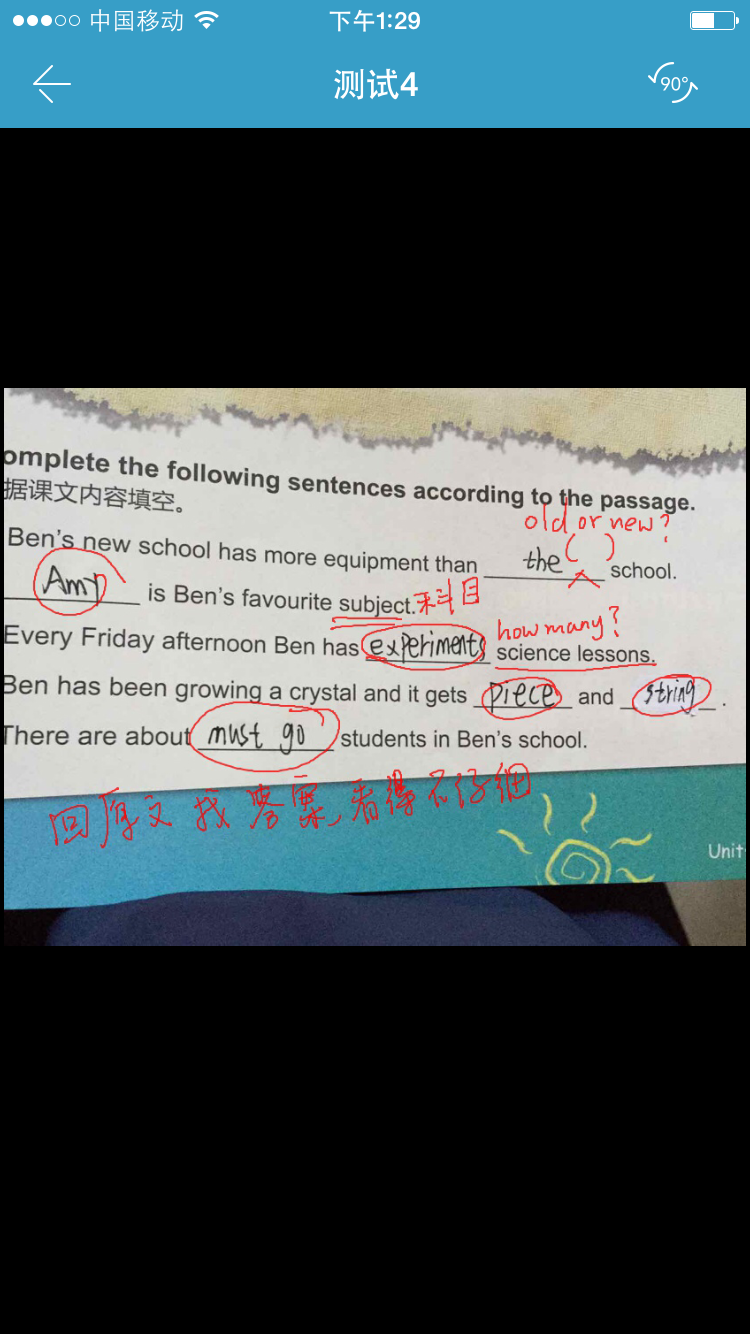 中国移动 下午1:29
测试4
90°
omplete the following sentences according to the passage.
据课文内容填空。
old or new?
Ben's new school has more equipment than the ( ) school.
Amy is Ben's favourite subject. 科目
how many?
Every Friday afternoon Ben has experiments science lessons.
Ben has been growing a crystal and it gets piece and string.
There are about must go students in Ben's school.
回原文找答案,看得不仔细
Unit